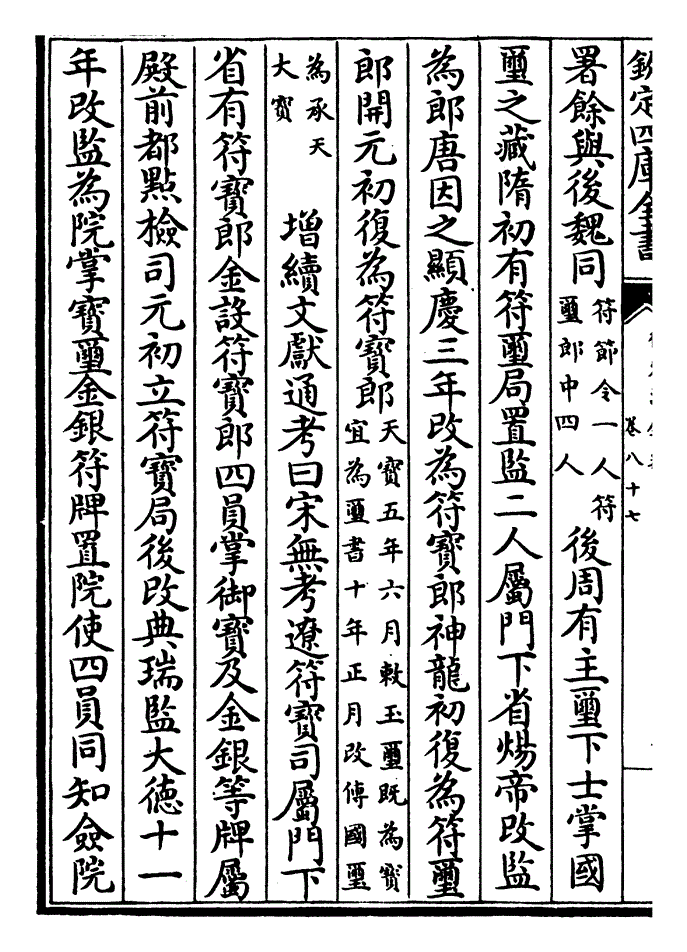 欽定四庫全書
卷八十七
署餘與後魏同符節令一人符璽郎中四人後周有主璽下士掌國
璽之藏隋初有符璽局置監二人屬門下省煬帝改監
為郎唐因之顯慶三年改為符寶郎神龍初復為符璽
郎開元初復為符寶郎天寶五年六月敕玉璽既為寶宜為璽書十年正月改傳國璽
為承天大寶 增續文獻通考曰宋無考遼符寶司屬門下
省有符寶郎金設符寶郎四員掌御寶及金銀等牌屬
殿前都點檢司元初立符寶局後改典瑞監大德十一
年改監為院掌寶璽金銀符牌置院使四員同知僉院